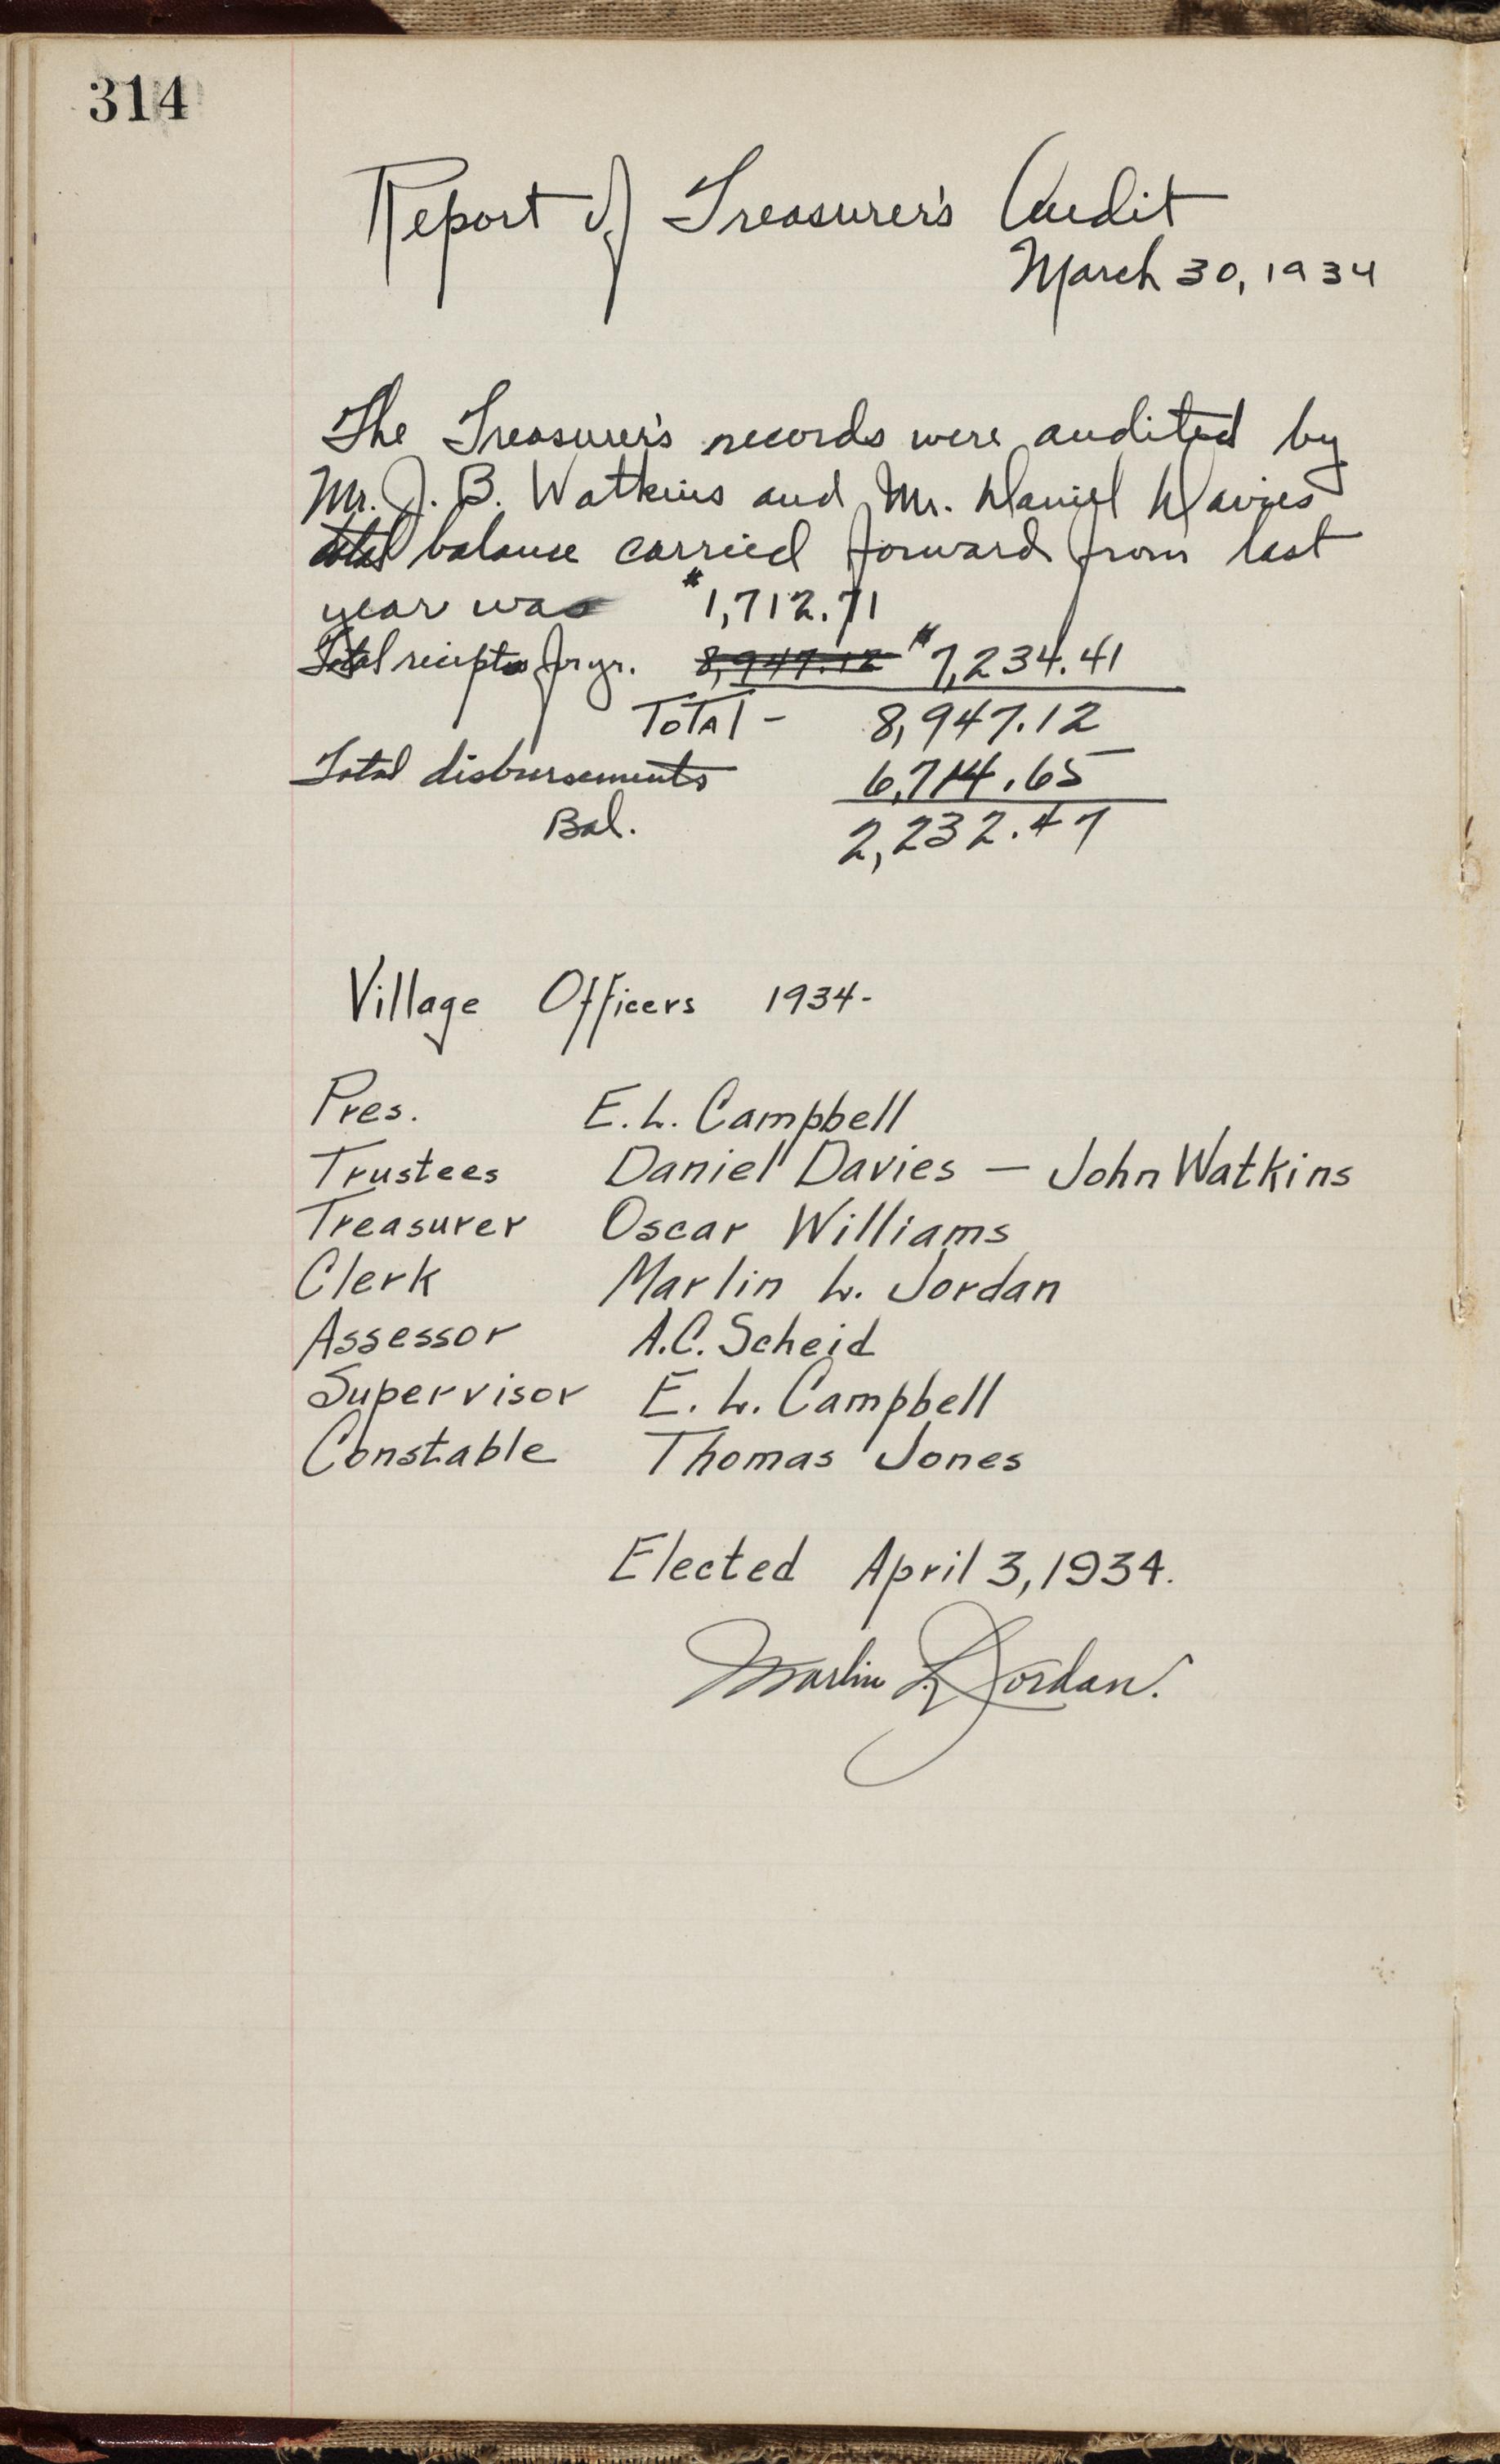 314
Report of Treasurer's Audit
March 30, 1934
The Treasurer's records were audited by
Mr. J. B. Watkins and Mr. Daniel Davies
total balance carried forward from last
year was $1,712.71
Total reicpts for yr. 8,947.12 $7,234.41
Total - 8,947.12
Total disbursements 6,714.65
Bal. 2,232.47
Village Officers 1934-
Pres. E. L. Campbell
Trustees Daniel Davies — John Watkins
Treasurer Oscar Williams
Clerk Marlin L. Jordan
Assessor A.C. Scheid
Supervisor E. L. Campbell
Constable Thomas Jones
Elected April 3, 1934.
Marlin L. Jordan.